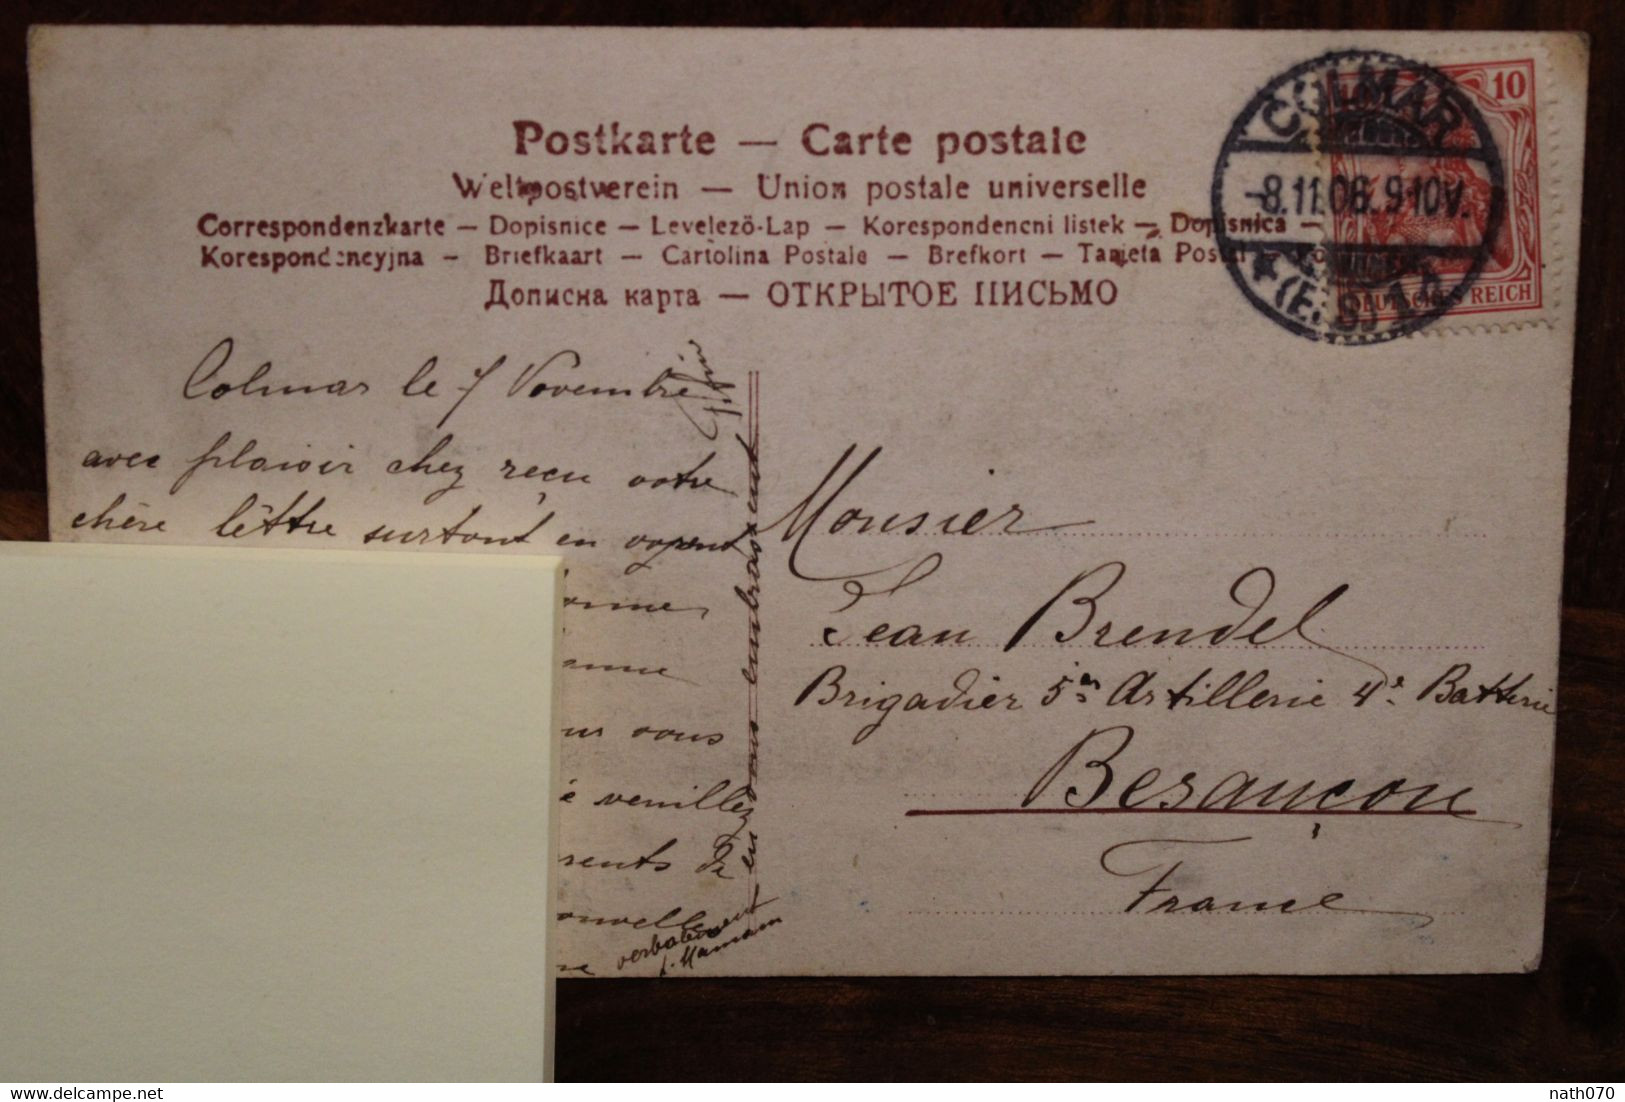 Postkarte — Carte postale
Weltpostverein — Union postale universelle
Correspondenzkarte — Dopisnice — Levelező-Lap — Korespondencni listek — Dopisnica —
Korespondencyjna — Briefkaart — Cartolina Postale — Brefkort — Tarjeta Postal
Дописна карта — ОТКРЫТОЕ ПИСЬМО
10
DEUTSCHES REICH
COLMAR
-8.11.06.9-10V.
★ (ELS.)
Colmar le 7 Novembre
avec plaisir chez reçu votre
chère lèttre surtout en voyent
onne
anne
vous
veuillez
rents de
ouvelle
en vous embrassent
verbalement
Maman
Monsier
Jean Brendel
Brigadier 5es Artillerie 4e Batterie
Besançon
France
delcampe.net
nath070